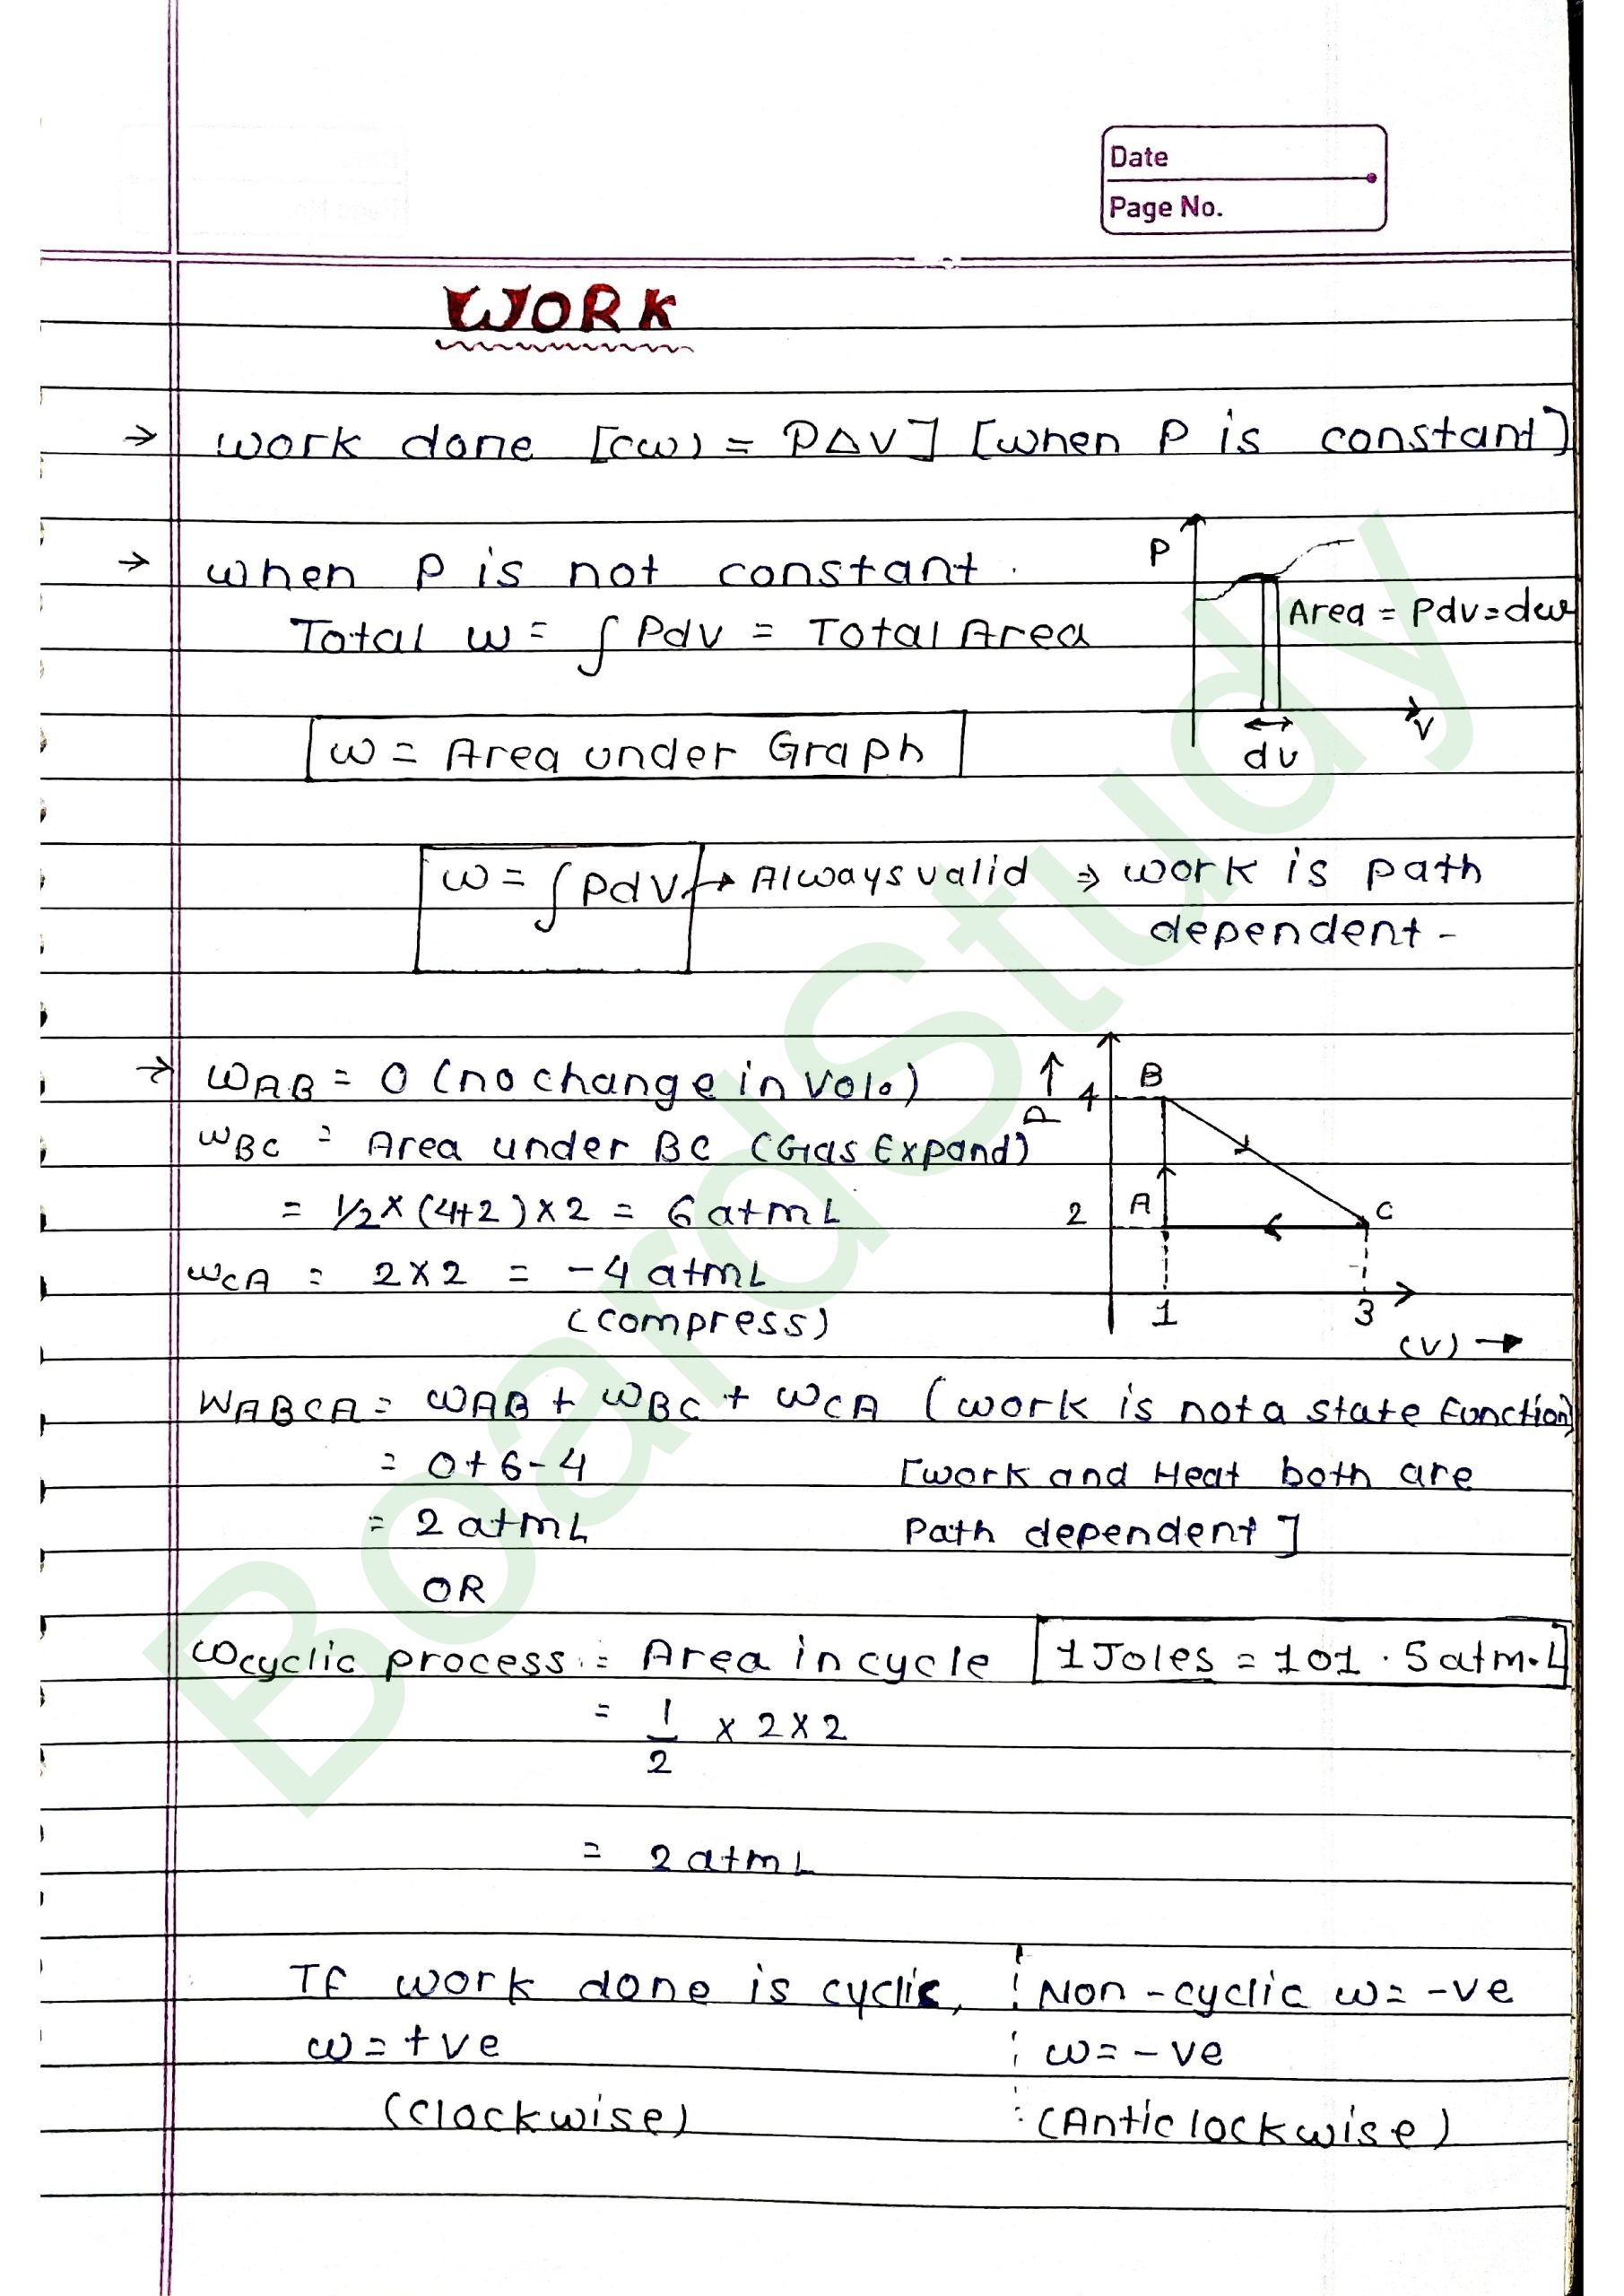 Date
Page No.
WORK
→ work done [(w) = PΔV] [when P is constant]
→ when P is not constant.
Total w = ∫ Pdv = Total Area
P
Area = Pdv=dw
V
dv
w = Area under Graph
w = ∫PdV → Always valid ⇒ work is path
dependent -
→ WAB = 0 (no change in Vol.)
WBC = Area under BC (Gas Expand)
= 1/2 × (4+2) × 2 = 6 atmL
WCA = 2×2 = -4 atmL
(compress)
↑
P
4
B
2
A
C
1
3
(V) →
WABCA = WAB + WBC + WCA (work is not a state function)
= 0+6-4 [work and Heat both are
= 2 atmL Path dependent]
OR
Wcyclic process = Area in cycle [1 Joles = 101.5 atm.L]
= 1/2 × 2×2
= 2 atmL
If work done is cyclic, Non-cyclic w= -ve
w = +ve w= -ve
(clockwise) (Anticlockwise)
BoardStudy